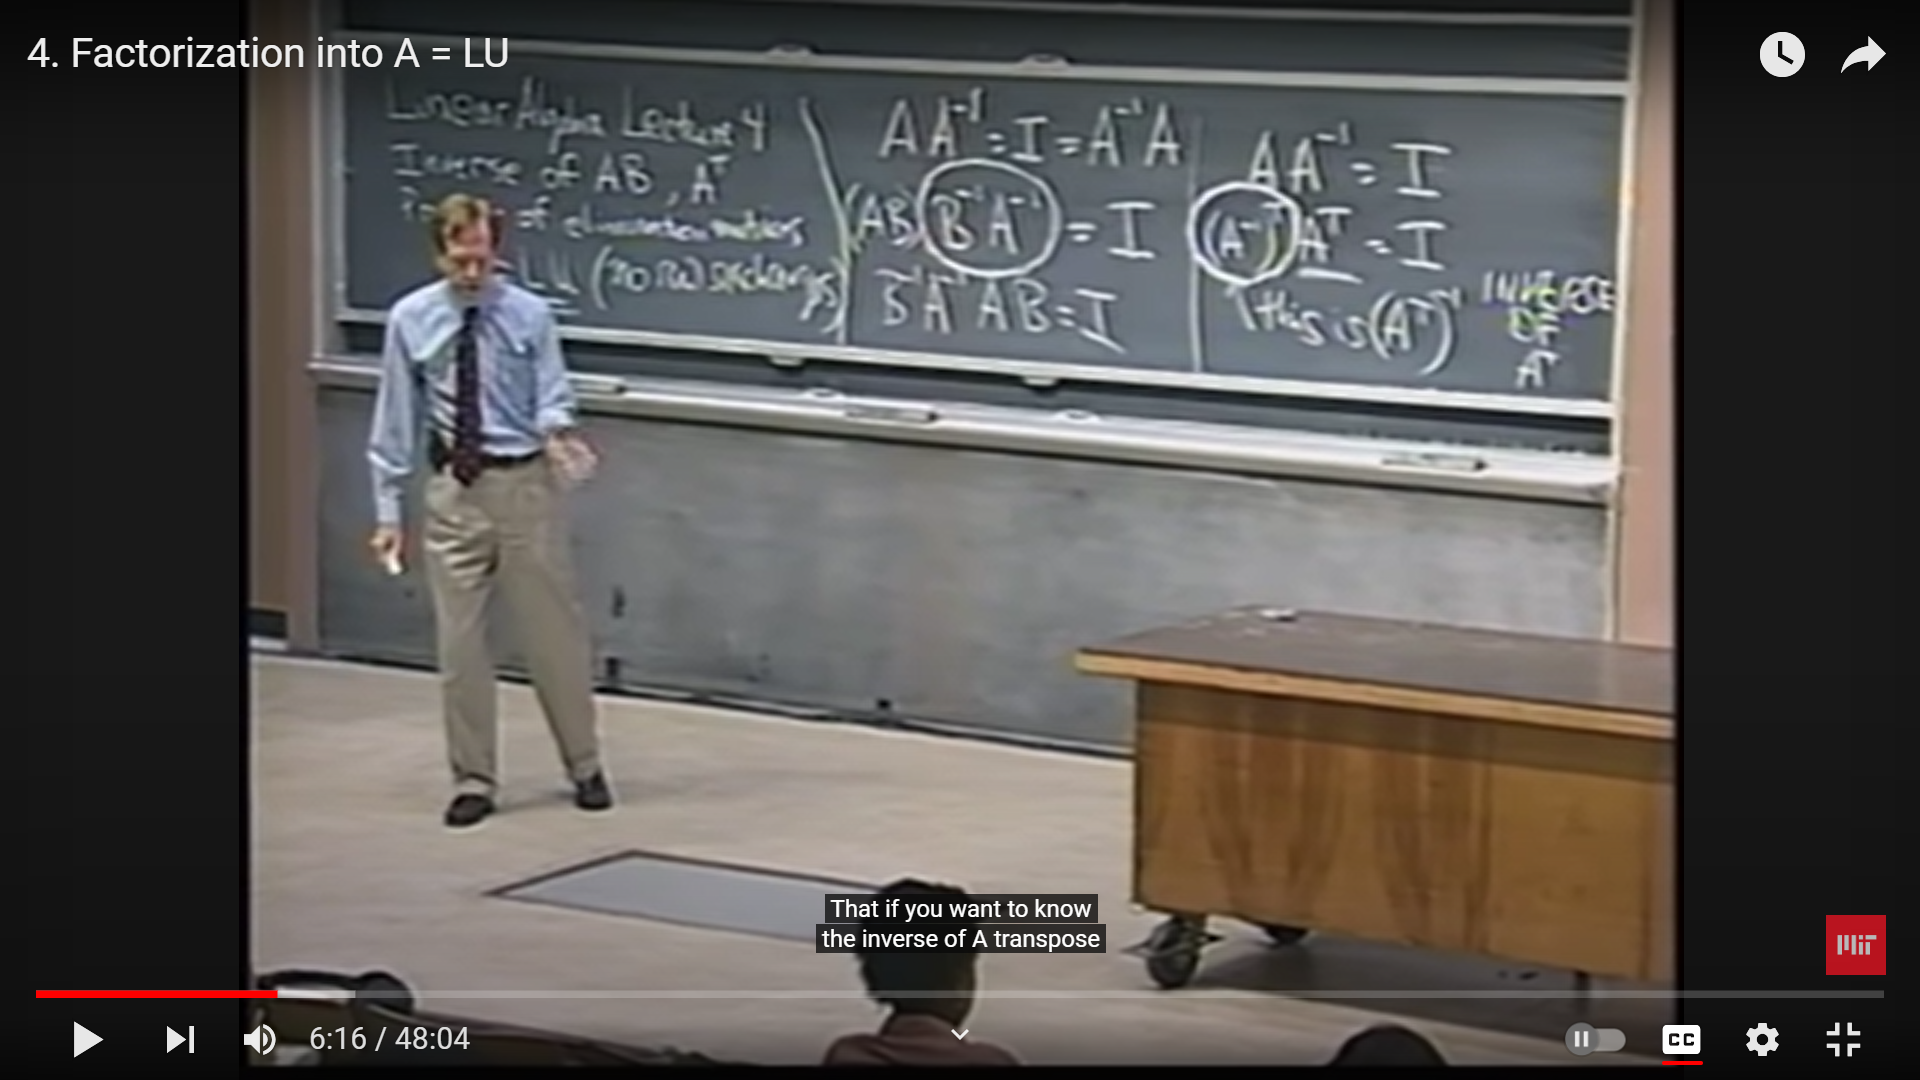 4. Factorization into A = LU
Linear Algebra Lecture 4
Inverse of AB, Aᵀ
of elimination matrices
LU (no row exchanges)
A A⁻¹ = I = A⁻¹ A
(AB) B⁻¹ A⁻¹ = I
B⁻¹ A⁻¹ A B = I
A A⁻¹ = I
(A⁻¹)ᵀ Aᵀ = I
↑ this is (Aᵀ)⁻¹
INVERSE
OF
Aᵀ
That if you want to know
the inverse of A transpose
MIT
6:16 / 48:04
CC